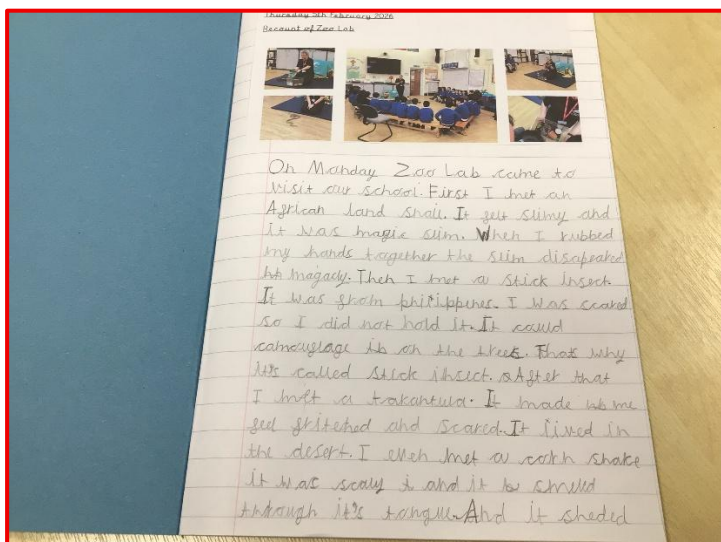 Thursday 5th February 2026
Recount of Zoo Lab
On Manday Zoo Lab came to
visit our school. First I met an
African land snail. It felt slimy and
it was magic slim. When I rubbed
my hands together the slim disapeared
magacly. Then I met a stick insect.
It was from philippines. I was scared
so I did not hold it. It could
camouflage on the trees. That why
it's called stick insect. After that
I met a tarantula. It made me
feel fritened and scared. It lived in
the desert. I even met a corn snake
it was scaly and it smeled
through it's tongue. And it sheded